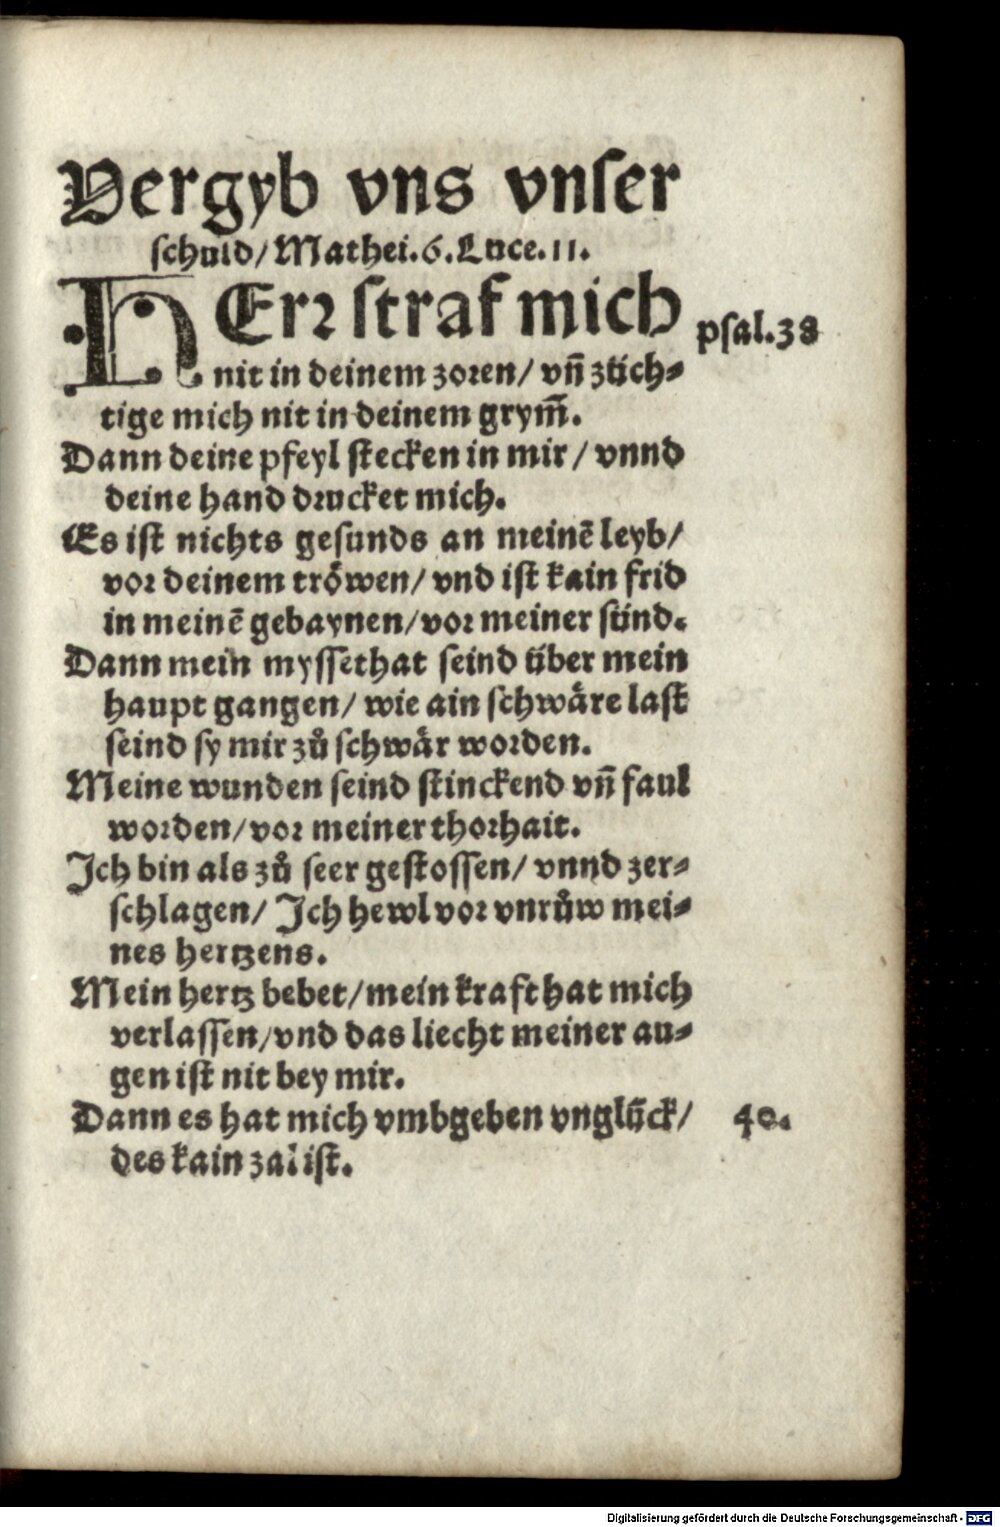 Vergyb vns vnser
schuld/ Mathei.6. Luce.11.
HErr straf mich
psal.38
nit in deinem zoren/ vn̄ züch⸗
tige mich nit in deinem grym̄.
Dann deine pfeyl stecken in mir/ vnnd
deine hand drucket mich.
Es ist nichts gesunds an meinē leyb/
vor deinem tröwen/ vnd ist kain frid
in meinē gebaynen/ vor meiner sünd.
Dann mein myssethat seind über mein
haupt gangen/ wie ain schwäre last
seind sy mir zů schwär worden.
Meine wunden seind stinckend vn̄ faul
worden/ vor meiner thorhait.
Ich bin als zů seer gestossen/ vnnd zer⸗
schlagen/ Ich hewl vor vnrůw mei⸗
nes hertzens.
Mein hertz bebet/ mein kraft hat mich
verlassen/ vnd das liecht meiner au⸗
gen ist nit bey mir.
Dann es hat mich vmbgeben vnglück/
40.
des kain zal ist.
Digitalisierung gefördert durch die Deutsche Forschungsgemeinschaft - DFG